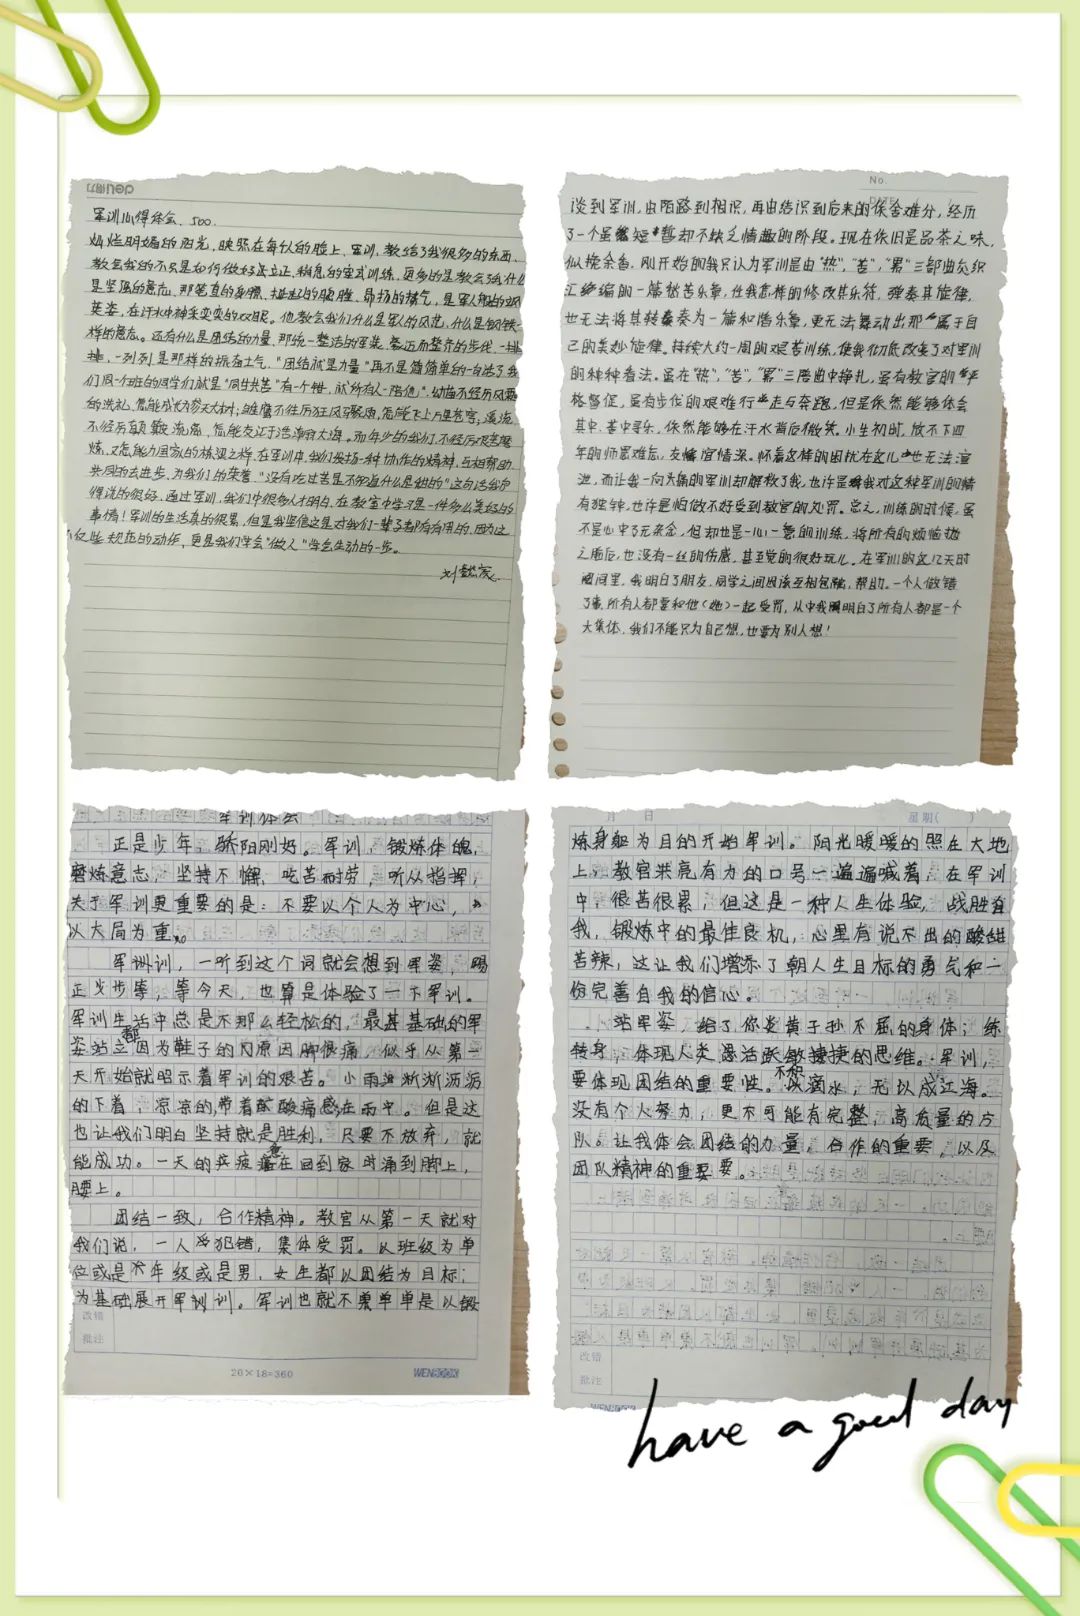 军训心得体会、500.
灿烂明媚的阳光，映照在每个人的脸上、军训，教给了我很多的东西、
教会我的不只是如何做好立正、稍息的室式训练，更多的是教会了我什么
是坚强的意志、那笔直的身躯、挺起的胸膛、昂扬的精气，是军人般的飒
英姿，在汗水中神采奕奕的双眼。他教会我们什么是军人的风范，什么是钢铁一
样的意志。还有什么是团结的力量、那统一整洁的军装、豪迈而整齐的步伐、一排
排、一列列是那样的振奋士气。"团结就是力量"再不是简简单单的一句话了我
们同一个班的同学们就是"同甘共苦"有一个错，就"所有人一陪他"。幼苗不经历风霜
的洗礼，怎能成长为参天大树；雏鹰不经历狂风骤雨，怎能飞上万里苍穹；溪流
不经历颠颠流离，怎能友汇于浩瀚的大海。而年少的我们，不经历艰苦磨
炼，又怎能力国家的栋梁之梓，在军训中，我们发扬一种协作的精神，互相帮助
共同的去进步，为我们的荣誉，"没有吃过苦是不知道什么是甜的"这句话我
得说的很好，通过军训，我们中很多人才明白，在教室中学习是一件多么美好的
事情！军训的生活真的很累，但是我坚信这是对我们一辈子都有有用的，因为这
不仅些规范的动作，更是我们学会"做人"学会生动的一步。
No.
DATE
谈到军训，由陌路到相识，再由结识到后来的依舍难分，经历
了一个虽短暂却不缺乏情趣的阶段。现在依旧是品茶之味，
似挽余香。刚开始的我只认为军训是由"热"，"苦"，"累"三部曲交织
汇绝编的一篇愁苦乐章，任我怎样的修改其乐符，弹奏其旋律，
也无法将其转奏为一篇和谐乐章，更无法舞动出那属于自
己的美妙旋律。持续大约一周的艰苦训练，使我彻底改变了对军训
的种种看法。虽在"热"，"苦"，"累"三陪曲中挣扎，虽有教官的严
格督促，虽有步伐的艰难行走与奔跑，但是依然能够体会
其中，苦中寻乐，依然能够在汗水背后微笑。小生初时，放不下四
年的师恩难忘，友情宜情深。怀着这样的困扰在这儿也无法渲
泄，而让我一向头痛的军训却解救了我，也许是我对这种军训的情
有独钟，也许是怕做不好受到教官的处罚。总之，训练的时候，虽
不是心中了无杂念，但却也是一心一意的训练，将所有的烦恼抛
之脑后，也没有一丝的伤感，甚至觉的很好玩儿。在军训的这几天时
间里，我明白了朋友，同学之间因该互相包融，帮助。一个人做错
了事，所有人都要和他(她)一起受罚，从中我明白了所有人都是一个
大集体，我们不能只为自己想，也要为别人想！
军训体会
正是少年，骄阳刚好。军训，锻炼体魄，
磨炼意志，坚持不懈，吃苦耐劳，听从指挥，
关于军训更重要的是：不要以个人为中心，
以大局为重。
军训，一听到这个词就会想到军姿，踢
正步步等，等今天，也算是体验了一下军训。
军训生活中总是不那么轻松的，最基基础的军
姿站立都因为鞋子的内原因脚很痛，似乎从第一
天开始就昭示着军训的艰苦。小雨淅淅沥沥
的下着，凉凉的，带着酸痛感在雨中。但是这
也让我们明白坚持就是胜利，只要不放弃，就
能成功。一天的疾疲惫在回到家时涌到脚上，
腰上。
团结一致，合作精神。教官从第一天就对
我们说，一人犯错，集体受罚。以班级为单
位或是年级或是男，女生都以团结为目标；
为基础展开军训训。军训也就不要单单是以锻
改错
批注
20×18=360
WENBOOK
月 日 星期( )
炼身躯为目的开始军训。阳光暖暖的照在大地
上，教官洪亮有力的口号一遍遍喊着，在军训
中，很苦很累，但这是一种人生体验，战胜自
我，锻炼中的最佳良机，心里有说不出的酸甜
苦辣，这让我们增添了朝人生目标的勇气和一
份完善自我的信心。
站军姿，给了你炎黄子孙不屈的身体；练
转身，体现人类灵活跃敏捷捷的思维。军训，
要体现团结的重要性。不积滴水，无以成江海。
没有个人努力，更不可能有完整，高质量的方
队。让我体会团结的力量，合作的重要，以及
团队精神的重要要。
改错
批注
have a good day